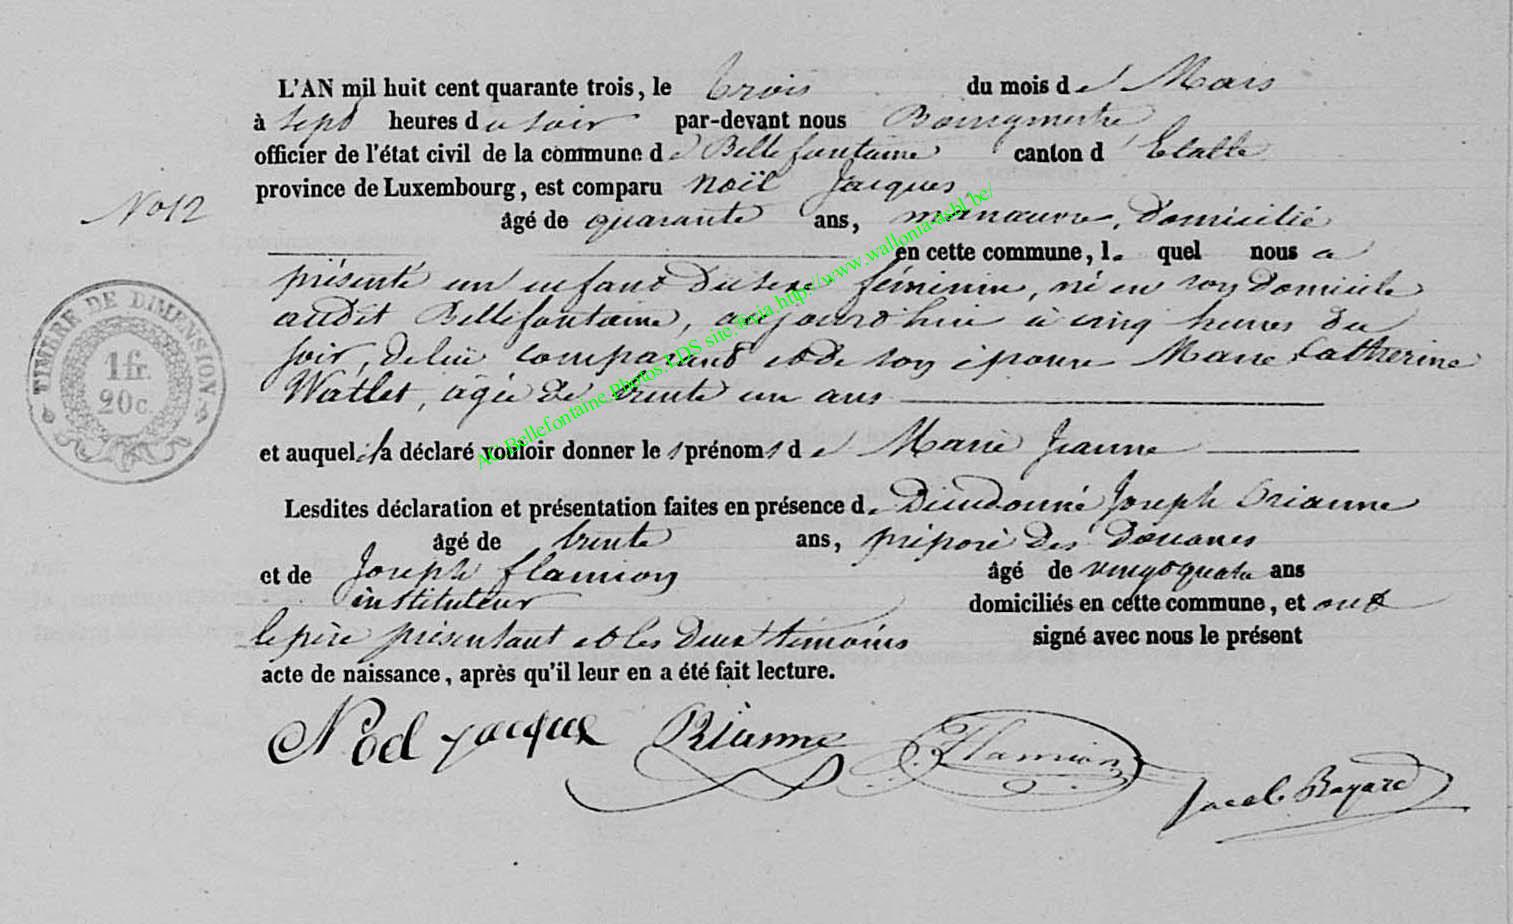 L'AN mil huit cent quarante trois, le trois du mois de Mars
à sept heures du soir par-devant nous Bourgmestre
officier de l'état civil de la commune de Bellefontaine canton d'Etalle
province de Luxembourg, est comparu Noël Jacques
No 12
âgé de quarante ans, manœuvre, domicilié
en cette commune, lequel nous a
présenté un enfant du sexe féminin, né en son domicile
audit Bellefontaine, aujourd'hui à cinq heures du
soir, de lui comparant et de son épouse Marie Catherine
Watlet, agée de trente un ans
et auquel il a déclaré vouloir donner les prénoms de Marie Jeanne
Lesdites déclaration et présentation faites en présence de Dieudonné Joseph Orianne
âgé de trente ans, préposé des douanes
et de Joseph Flamion âgé de vingt quatre ans
instituteur domiciliés en cette commune, et ont
le père présentant et les deux témoins signé avec nous le présent
acte de naissance, après qu'il leur en a été fait lecture.
Noel jacque Orianne Flamion
Jacob Bayard
TIMBRE DE DIMENSION
1 fr.
20 c.
AC.Bellefontaine.Photos.LDS site.©via.http://www.wallonia-asbl.be/